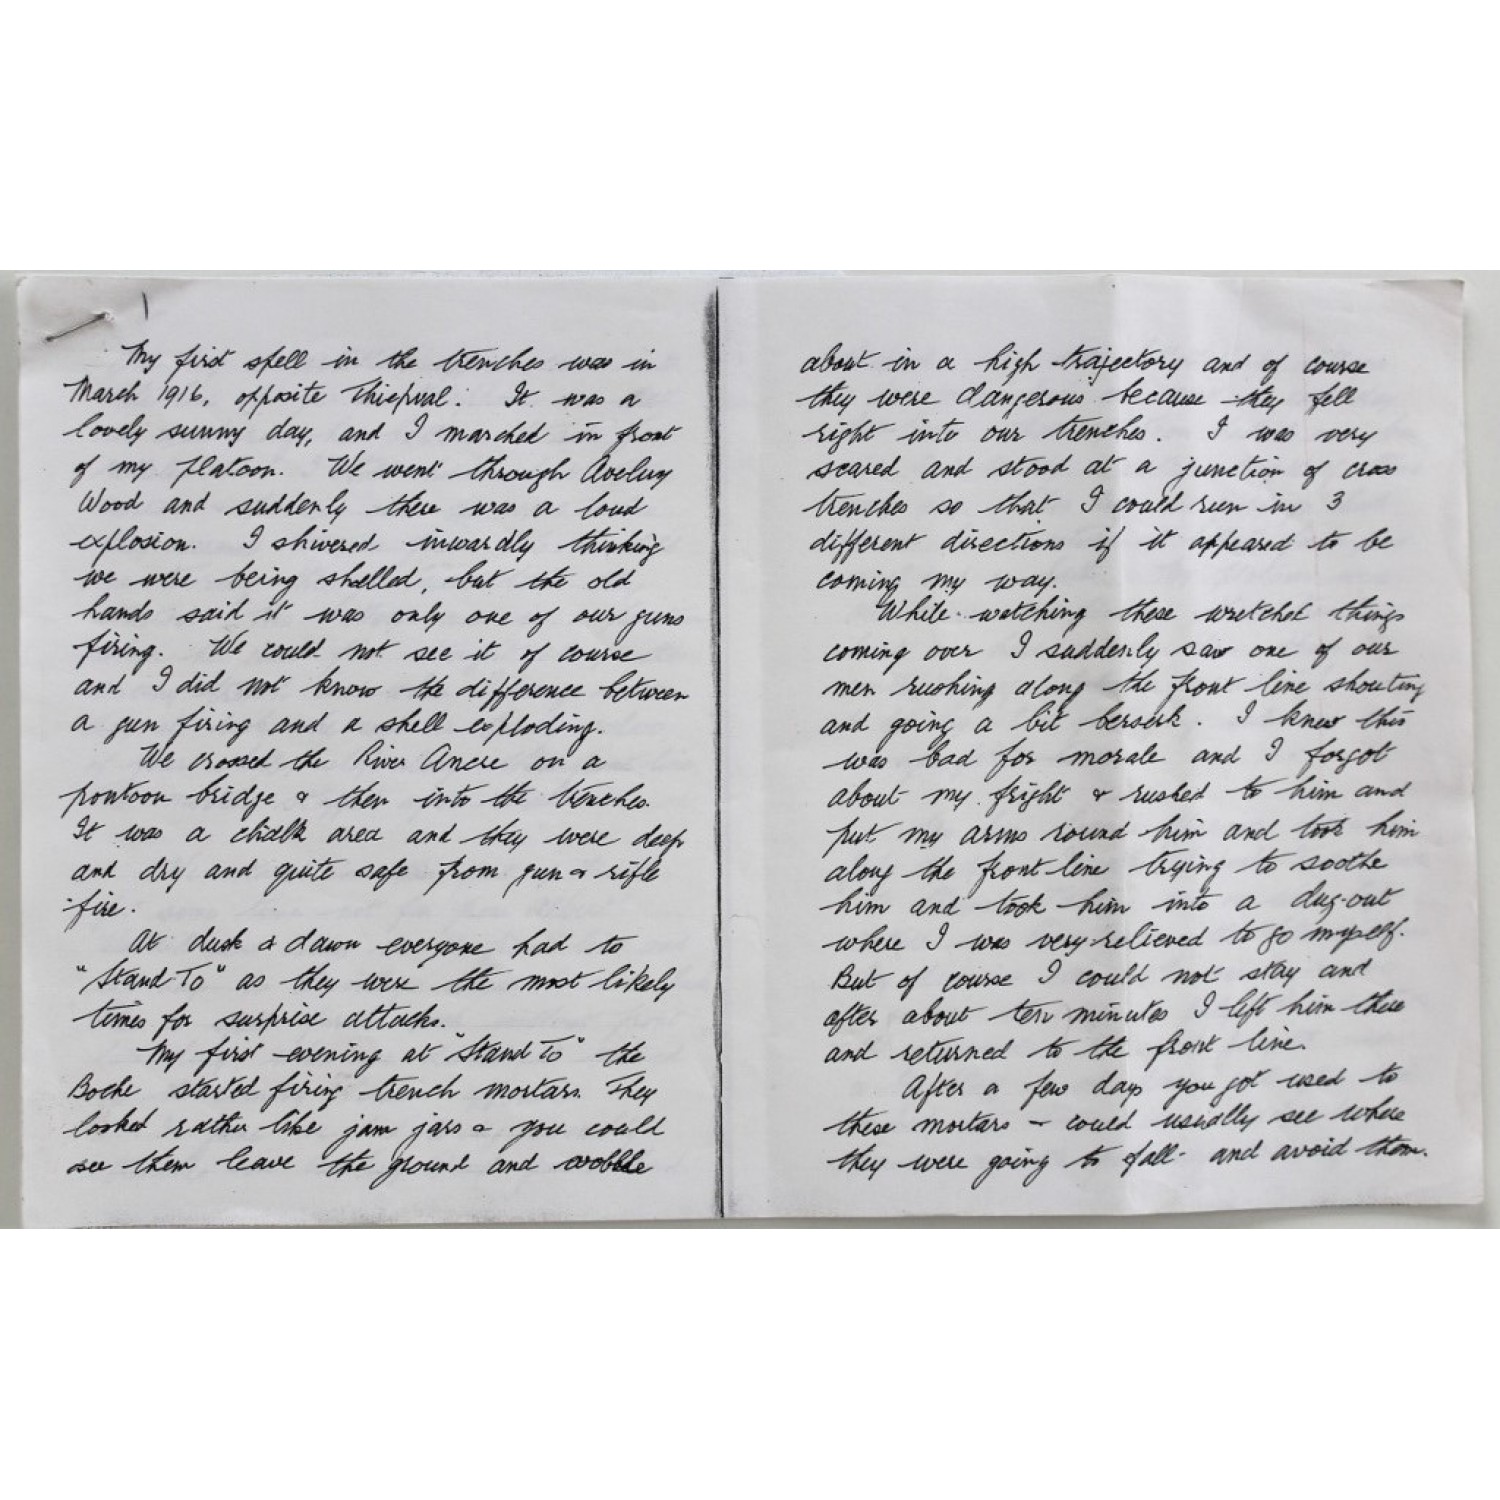 My first spell in the trenches was in
March 1916, opposite Thiepval. It was a
lovely sunny day, and I marched in front
of my platoon. We went through Aveluy
Wood and suddenly there was a loud
explosion. I shivered inwardly thinking
we were being shelled, but the old
hands said it was only one of our guns
firing. We could not see it of course
and I did not know the difference between
a gun firing and a shell exploding.
We crossed the River Ancre on a
pontoon bridge & then into the trenches.
It was a chalk area and they were deep
and dry and quite safe from gun & rifle
fire.
At dusk & dawn everyone had to
"Stand To" as they were the most likely
times for surprise attacks.
My first evening at "Stand To" the
Boche started firing trench mortars. They
looked rather like jam jars & you could
see them leave the ground and wobble
about in a high trajectory and of course
they were dangerous because they fell
right into our trenches. I was very
scared and stood at a junction of cross
trenches so that I could run in 3
different directions if it appeared to be
coming my way.
While watching these wretched things
coming over I suddenly saw one of our
men rushing along the front line shouting
and going a bit berserk. I knew this
was bad for morale and I forgot
about my fright & rushed to him and
put my arms round him and took him
along the front line trying to soothe
him and took him into a dug-out
where I was very relieved to go myself.
But of course I could not stay and
after about ten minutes I left him there
and returned to the front line.
After a few days you got used to
these mortars - could usually see where
they were going to fall - and avoid them.